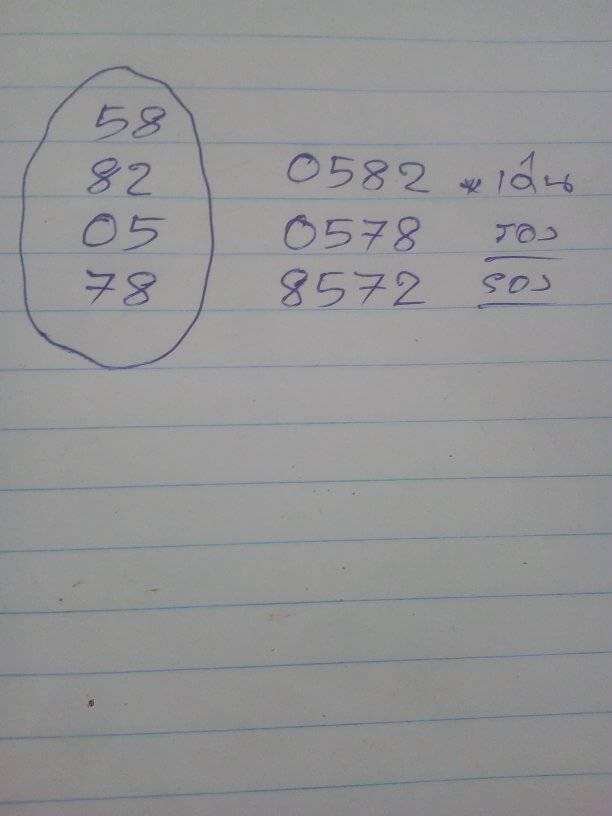 58
82 0582 * เด่น
05 0578 รอง
78 8572 รอง